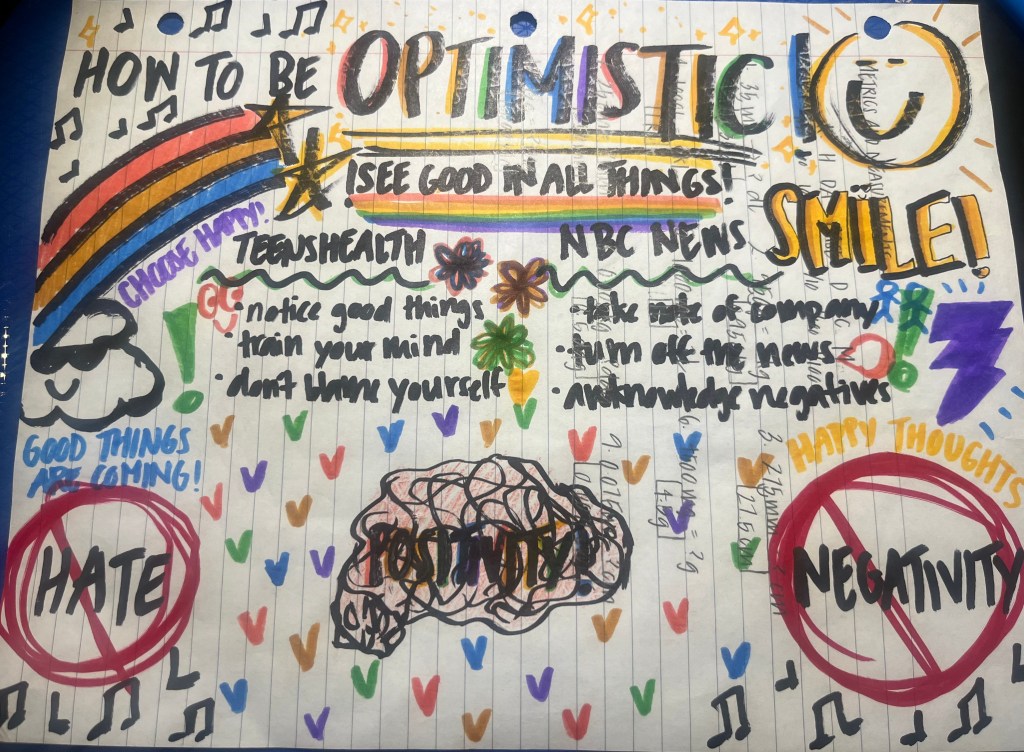 HOW TO BE OPTIMISTIC!
! SEE GOOD IN ALL THINGS!
SMILE!
CHOOSE HAPPY!
TEENSHEALTH
• notice good things
• train your mind
• don't blame yourself
NBC NEWS
• take note of company
• turn off the news
• acknowledge negatives
GOOD THINGS
ARE COMING!
HAPPY THOUGHTS
HATE
POSITIVITY!
NEGATIVITY